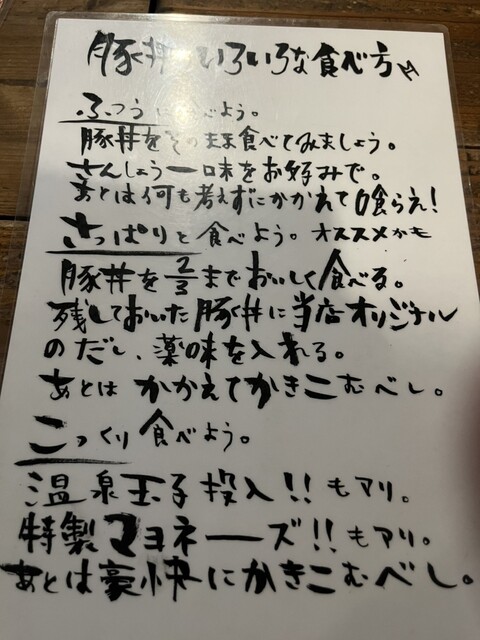 豚丼のいろいろな食べ方
ふつうに食べよう。
豚丼をそのまま食べてみましょう。
さんしょう一味をお好みで。
あとは何も考えずにかかえて喰らえ!
さっぱりと食べよう。オススメかも
豚丼を2/3までおいしく食べる。
残しておいた豚丼に当店オリジナル
のだし、薬味を入れる。
あとはかかえてかきこむべし。
こっくり食べよう。
温泉玉子投入!!もアリ。
特製マヨネーズ!!もアリ。
あとは豪快にかきこむべし。